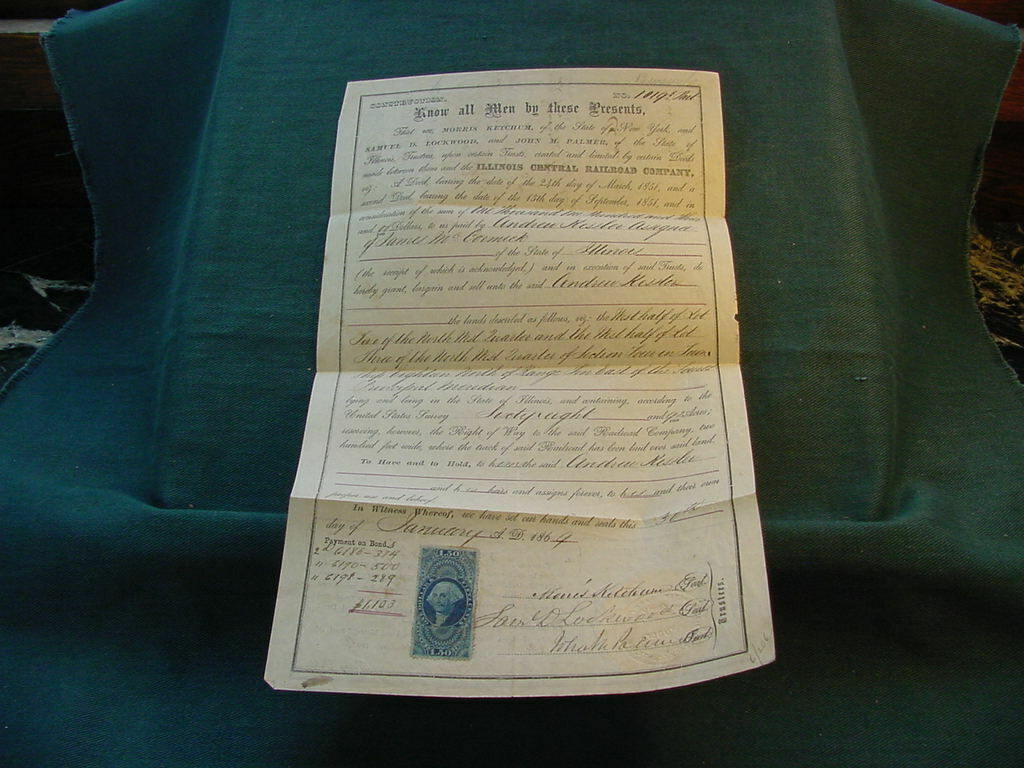 CONSTRUCTION. NO.
Know all Men by these Presents,
That we, MORRIS KETCHUM, of the State of New York, and
SAMUEL D. LOCKWOOD, and JOHN M. PALMER, of the State of
Illinois, Trustees, upon certain Trusts, created and limited by certain Deeds
made between them and the ILLINOIS CENTRAL RAILROAD COMPANY,
viz: A Deed, bearing the date of the 24th day of March, 1851, and a
second Deed, bearing the date of the 15th day of September, 1851, and in
consideration of the sum of One Thousand One Hundred and Three
and Dollars, to us paid by Andrew Kesler Assignee
of James McCormick
of the State of Illinois
(the receipt of which is acknowledged,) and in execution of said Trusts, do
hereby grant, bargain and sell unto the said Andrew Kesler
the lands described as follows, viz: the West half of Lot
Five of the North West Quarter and the West half of Lot
Three of the North West Quarter of Section Four in Town
ship Eighteen North of Range Ten East of the
Principal Meridian
lying and being in the State of Illinois, and containing, according to the
United States Survey Sixty eight and Acres;
reserving, however, the Right of Way to the said Railroad Company, two
hundred feet wide, where the track of said Railroad has been laid over said land.
To Have and to Hold, to the said Andrew Kesler
and heirs and assigns forever, to and their own
proper use and behoof.
In Witness Whereof, we have set our hands and seals this 30th
day of January A. D. 1864
Payment on Bond
2d 6186-314
11 6190-500
11 6198-289
$1,103
1.50
1.50
Morris Ketchum Seal
Sam D Lockwood Seal
John M Palmer Seal
Trustees.